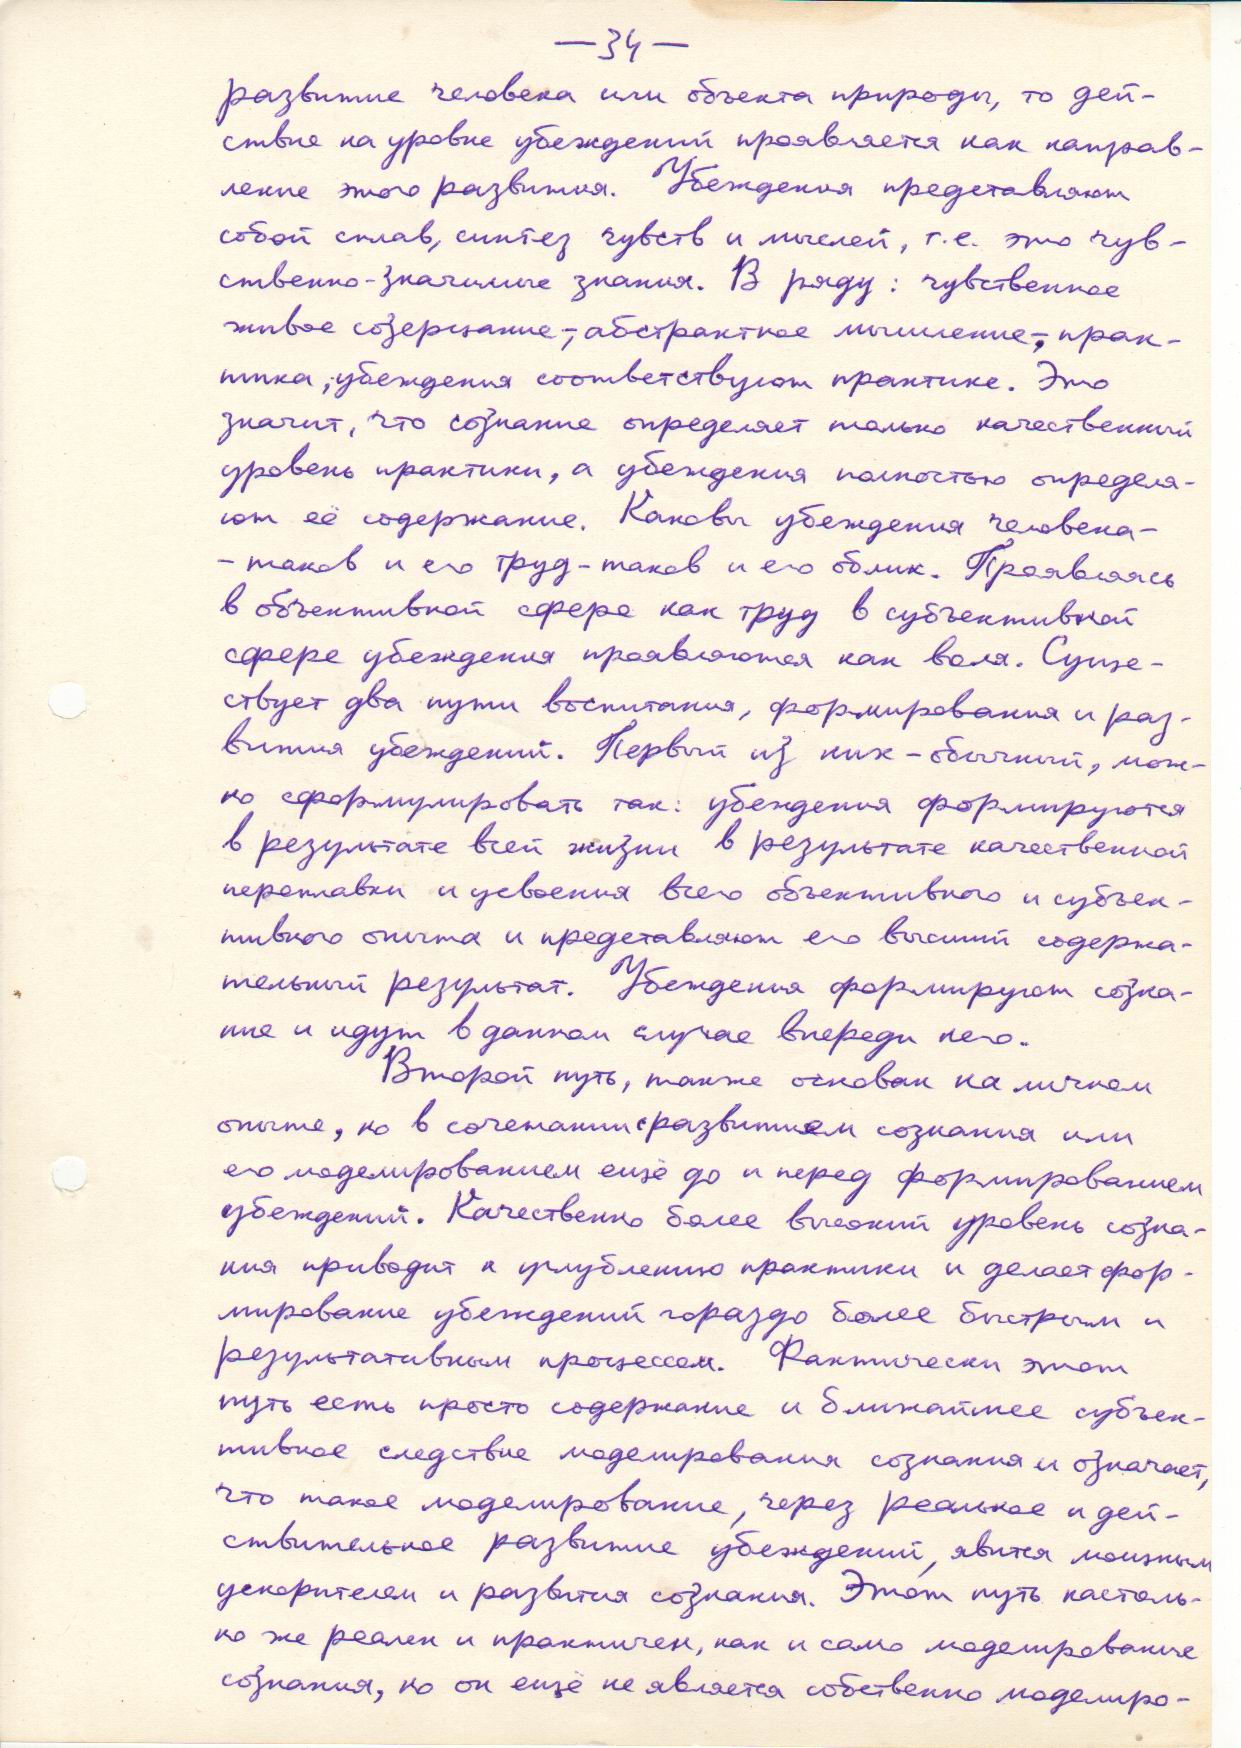 — 34 —
развитие человека или объекта природы, то дей-
ствие на уровне убеждений проявляется как направ-
ление этого развития. Убеждения представляют
собой сплав, синтез чувств и мыслей, т.е. это чув-
ственно-значимые знания. В ряду: чувственное
живое созерцание -, абстрактное мышление -, прак-
тика, убеждения соответствуют практике. Это
значит, что сознание определяет только качественный
уровень практики, а убеждения полностью определя-
ют её содержание. Каковы убеждения человека -
- таков и его труд - таков и его облик. Проявляясь
в объективной сфере как труд в субъективной
сфере убеждения проявляются как воля. Суще-
ствует два пути воспитания, формирования и раз-
вития убеждений. Первый из них - обычный, мож-
но сформулировать так: убеждения формируются
в результате всей жизни в результате качественной
переплавки и усвоения всего объективного и субъек-
тивного опыта и представляют его высший содержа-
тельный результат. Убеждения формируют созна-
ние и идут в данном случае впереди него.
Второй путь, также основан на личном
опыте, но в сочетании с развитием сознания или
его моделированием ещё до и перед формированием
убеждений. Качественно более высокий уровень созна-
ния приводит к углублению практики и делает фор-
мирование убеждений гораздо более быстрым и
результативным процессом. Фактически этот
путь есть просто содержание и ближайшее субъек-
тивное следствие моделирования сознания и означает,
что такое моделирование, через реальное и дей-
ствительное развитие убеждений, явится мощным
ускорителем и развития сознания. Этот путь настоль-
но же реален и практичен, как и само моделирование
сознания, но он ещё не является собственно моделиро-